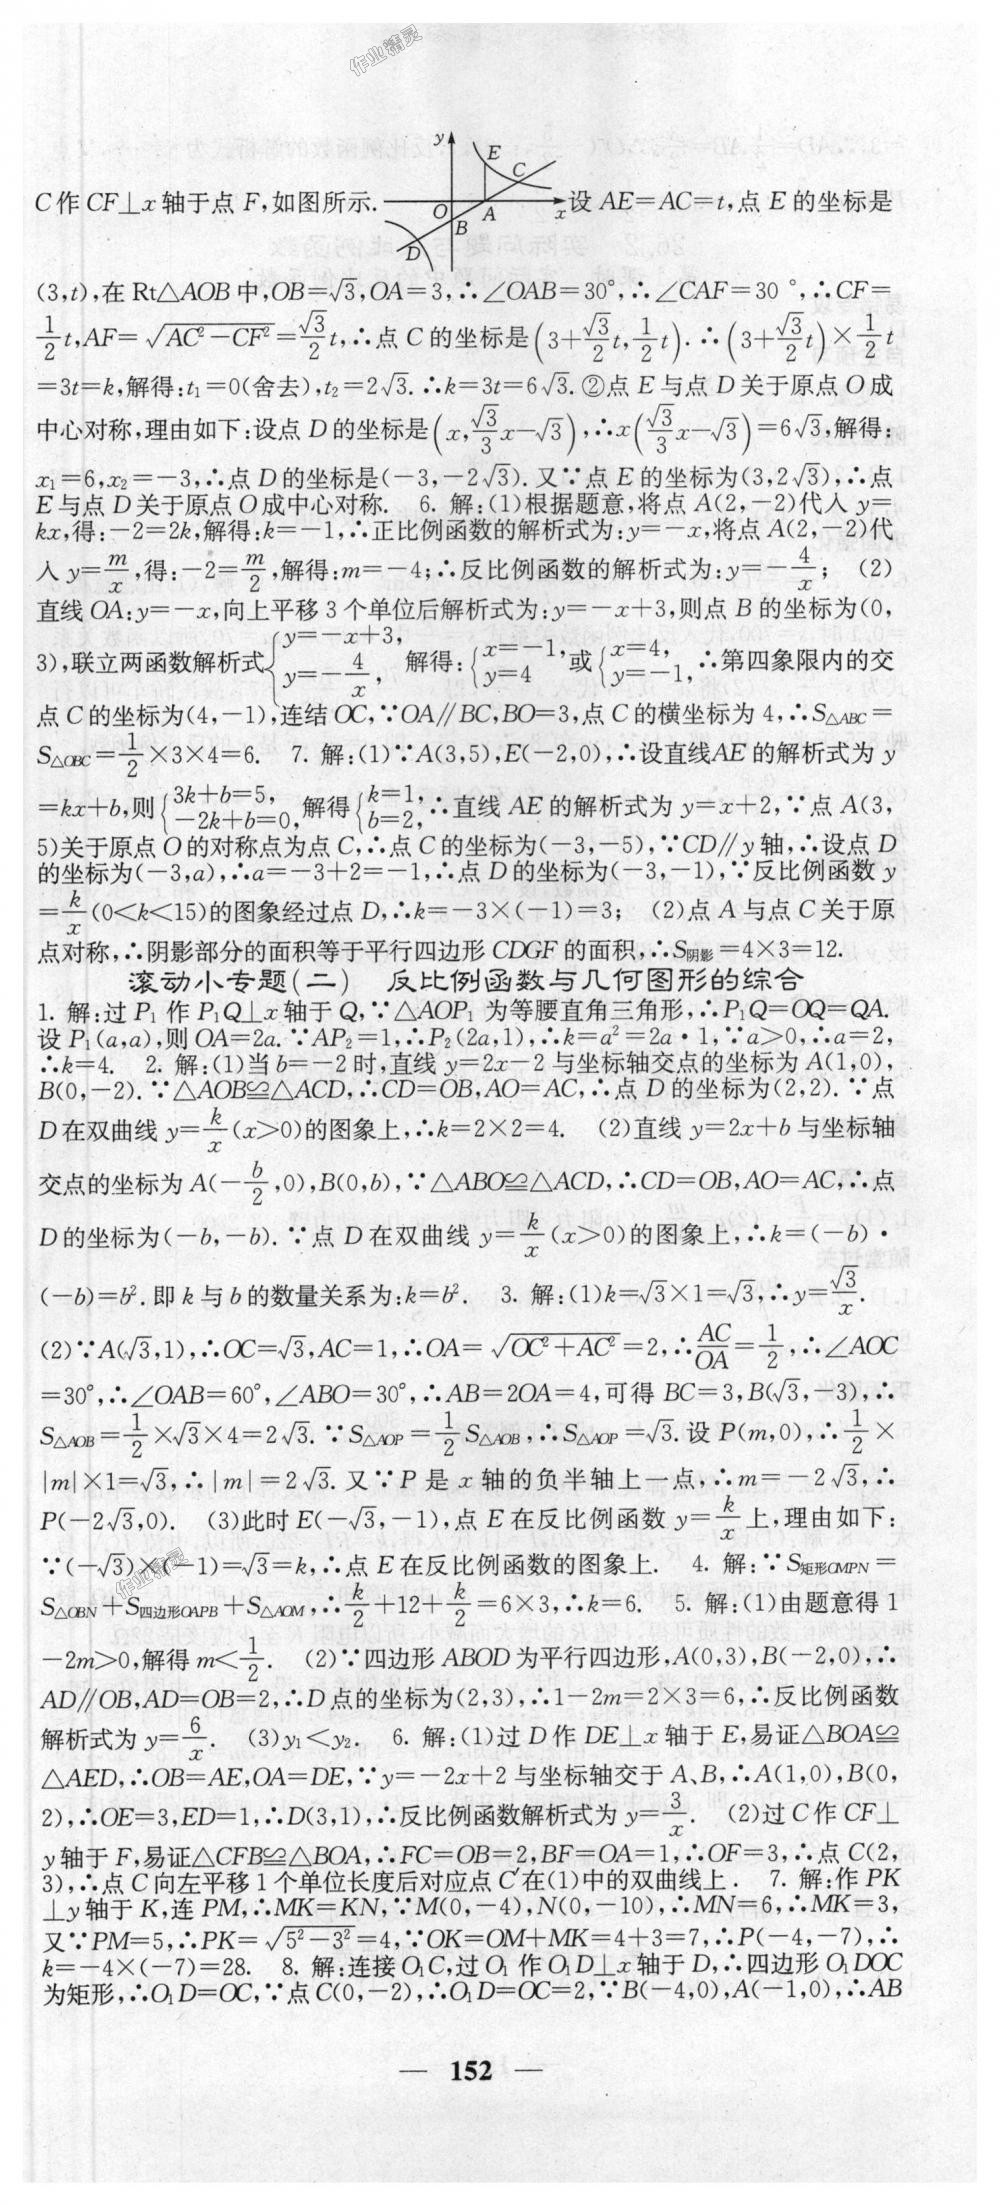 作业精灵
y
E
C
C作CF⊥x轴于点F,如图所示. O A x 设AE=AC=t,点E的坐标是
B
D
(3,t),在Rt△AOB中,OB=√3,OA=3,∴∠OAB=30°,∴∠CAF=30 °,∴CF=
1/2t,AF=√(AC²-CF²)=√3/2t,∴点C的坐标是(3+√3/2t,1/2t).∴(3+√3/2t)×1/2t
=3t=k,解得:t₁=0(舍去),t₂=2√3.∴k=3t=6√3.②点E与点D关于原点O成
中心对称,理由如下:设点D的坐标是(x,√3/3x-√3),∴x(√3/3x-√3)=6√3,解得:
x₁=6,x₂=-3,∴点D的坐标是(-3,-2√3).又∵点E的坐标为(3,2√3),∴点
E与点D关于原点O成中心对称. 6. 解:(1)根据题意,将点A(2,-2)代入y=
kx,得:-2=2k,解得:k=-1,∴正比例函数的解析式为:y=-x,将点A(2,-2)代
入y=m/x,得:-2=m/2,解得:m=-4;∴反比例函数的解析式为:y=-4/x; (2)
直线OA:y=-x,向上平移3个单位后解析式为:y=-x+3,则点B的坐标为(0,
3),联立两函数解析式{y=-x+3, y=-4/x, 解得:{x=-1, y=4 或{x=4, y=-1, ∴第四象限内的交
点C的坐标为(4,-1),连结OC,∵OA∥BC,BO=3,点C的横坐标为4,∴S△ABC=
S△OBC=1/2×3×4=6. 7. 解:(1)∵A(3,5),E(-2,0),∴设直线AE的解析式为y
=kx+b,则{3k+b=5, -2k+b=0, 解得{k=1, b=2, ∴直线AE的解析式为y=x+2,∵点A(3,
5)关于原点O的对称点为点C,∴点C的坐标为(-3,-5),∵CD∥y轴,∴设点D
的坐标为(-3,a),∴a=-3+2=-1,∴点D的坐标为(-3,-1),∵反比例函数y
=k/x(0<k<15)的图象经过点D,∴k=-3×(-1)=3; (2)点A与点C关于原
点对称,∴阴影部分的面积等于平行四边形CDGF的面积,∴S阴影=4×3=12.
滚动小专题(二) 反比例函数与几何图形的综合
1. 解:过P₁作P₁Q⊥x轴于Q,∵△AOP₁为等腰直角三角形,∴P₁Q=OQ=QA.
设P₁(a,a),则OA=2a.∵AP₂=1,∴P₂(2a,1),∴k=a²=2a·1,∵a>0,∴a=2,
∴k=4. 2. 解:(1)当b=-2时,直线y=2x-2与坐标轴交点的坐标为A(1,0),
B(0,-2).∵△AOB≌△ACD,∴CD=OB,AO=AC,∴点D的坐标为(2,2).∵点
D在双曲线y=k/x(x>0)的图象上,∴k=2×2=4. (2)直线y=2x+b与坐标轴
交点的坐标为A(-b/2,0),B(0,b),∵△ABO≌△ACD,∴CD=OB,AO=AC,∴点
D的坐标为(-b,-b).∵点D在双曲线y=k/x(x>0)的图象上,∴k=(-b)·
(-b)=b².即k与b的数量关系为:k=b². 3. 解:(1)k=√3×1=√3,∴y=√3/x.
(2)∵A(√3,1),∴OC=√3,AC=1,∴OA=√(OC²+AC²)=2,∴AC/OA=1/2,∴∠AOC
=30°,∴∠OAB=60°,∠ABO=30°,∴AB=2OA=4,可得BC=3,B(√3,-3),∴
S△AOB=1/2×√3×4=2√3.∵S△AOP=1/2S△AOB,∴S△AOP=√3.设P(m,0),∴1/2×
|m|×1=√3,∴|m|=2√3.又∵P是x轴的负半轴上一点,∴m=-2√3,∴
P(-2√3,0). (3)此时E(-√3,-1),点E在反比例函数y=k/x上,理由如下:
∵(-√3)×(-1)=√3=k,∴点E在反比例函数的图象上. 4. 解:∵S矩形OMPN=
作业精灵
S△OBN+S四边形OAPB+S△AOM,∴k/2+12+k/2=6×3,∴k=6. 5. 解:(1)由题意得1
-2m>0,解得m<1/2. (2)∵四边形ABOD为平行四边形,A(0,3),B(-2,0),∴
AD∥OB,AD=OB=2,∴D点的坐标为(2,3),∴1-2m=2×3=6,∴反比例函数
解析式为y=6/x. (3)y₁<y₂. 6. 解:(1)过D作DE⊥x轴于E,易证△BOA≌
△AED,∴OB=AE,OA=DE,∵y=-2x+2与坐标轴交于A、B,∴A(1,0),B(0,
2),∴OE=3,ED=1,∴D(3,1),∴反比例函数解析式为y=3/x. (2)过C作CF⊥
y轴于F,易证△CFB≌△BOA,∴FC=OB=2,BF=OA=1,∴OF=3,∴点C(2,
3),∴点C向左平移1个单位长度后对应点C′在(1)中的双曲线上. 7. 解:作PK
⊥y轴于K,连PM,∴MK=KN,∵M(0,-4),N(0,-10),∴MN=6,∴MK=3,
又∵PM=5,∴PK=√(5²-3²)=4,∵OK=OM+MK=4+3=7,∴P(-4,-7),∴
k=-4×(-7)=28. 8. 解:连接O₁C,过O₁作O₁D⊥x轴于D,∴四边形O₁DOC
为矩形,∴O₁D=OC,∵点C(0,-2),∴O₁D=OC=2,∵B(-4,0),A(-1,0),∴AB
— 152 —